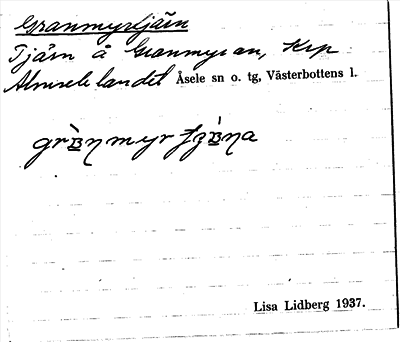 Granmyrtjärn
Tjärn å Granmyran, Krp
Almsele landet Åsele sn o. tg, Västerbottens l.
Lisa Lidberg 1937.